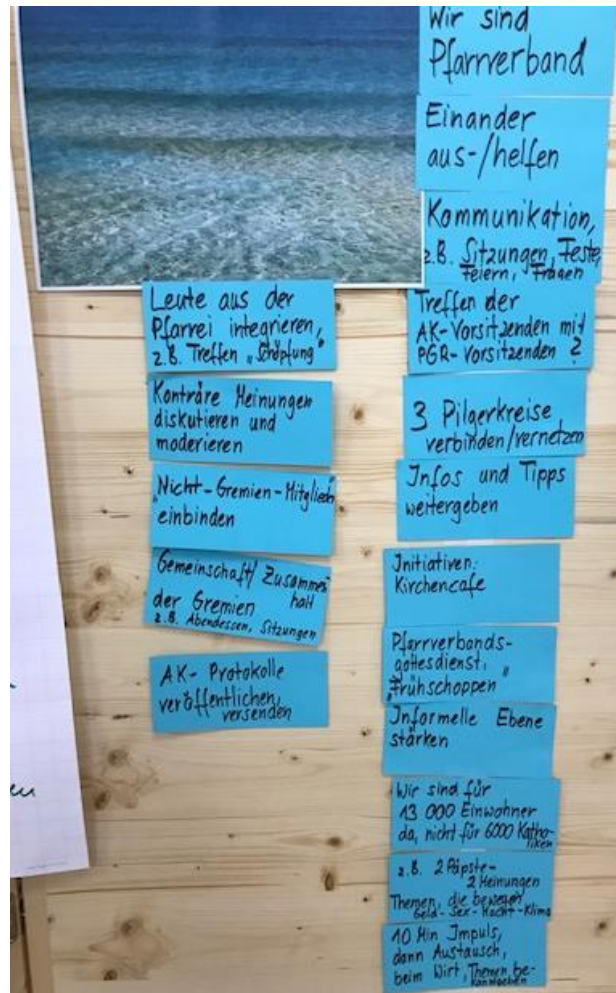 Leute aus der
Pfarrei integrieren,
z.B. Treffen "Schöpfung"
Konträre Meinungen
diskutieren und
moderieren
"Nicht-Gremien-Mitglieder"
einbinden
Gemeinschaft/Zusammen
halt
der Gremien
z.B. Abendessen, Sitzungen
AK-Protokolle
veröffentlichen,
versenden
Wir sind
Pfarrverband
Einander
aus-/helfen
Kommunikation,
z.B. Sitzungen, Feste,
Feiern, Fragen
Treffen der
AK-Vorsitzenden mit
PGR-Vorsitzenden ?
3 Pilgerkreise
verbinden/vernetzen
Infos und Tipps
weitergeben
Initiativen:
Kirchencafe
Pfarrverbands-
gottesdienst,
"Frühschoppen"
Informelle Ebene
stärken
Wir sind für
13 000 Einwohner
da, nicht für 6000 Katho-
liken
z.B. 2 Päpste-
2 Meinungen
Themen, die bewegen
Geld-Sex-Macht-Klima
10 Min Impuls,
dann Austausch,
beim Wirt, Themen be-
kanntmachen